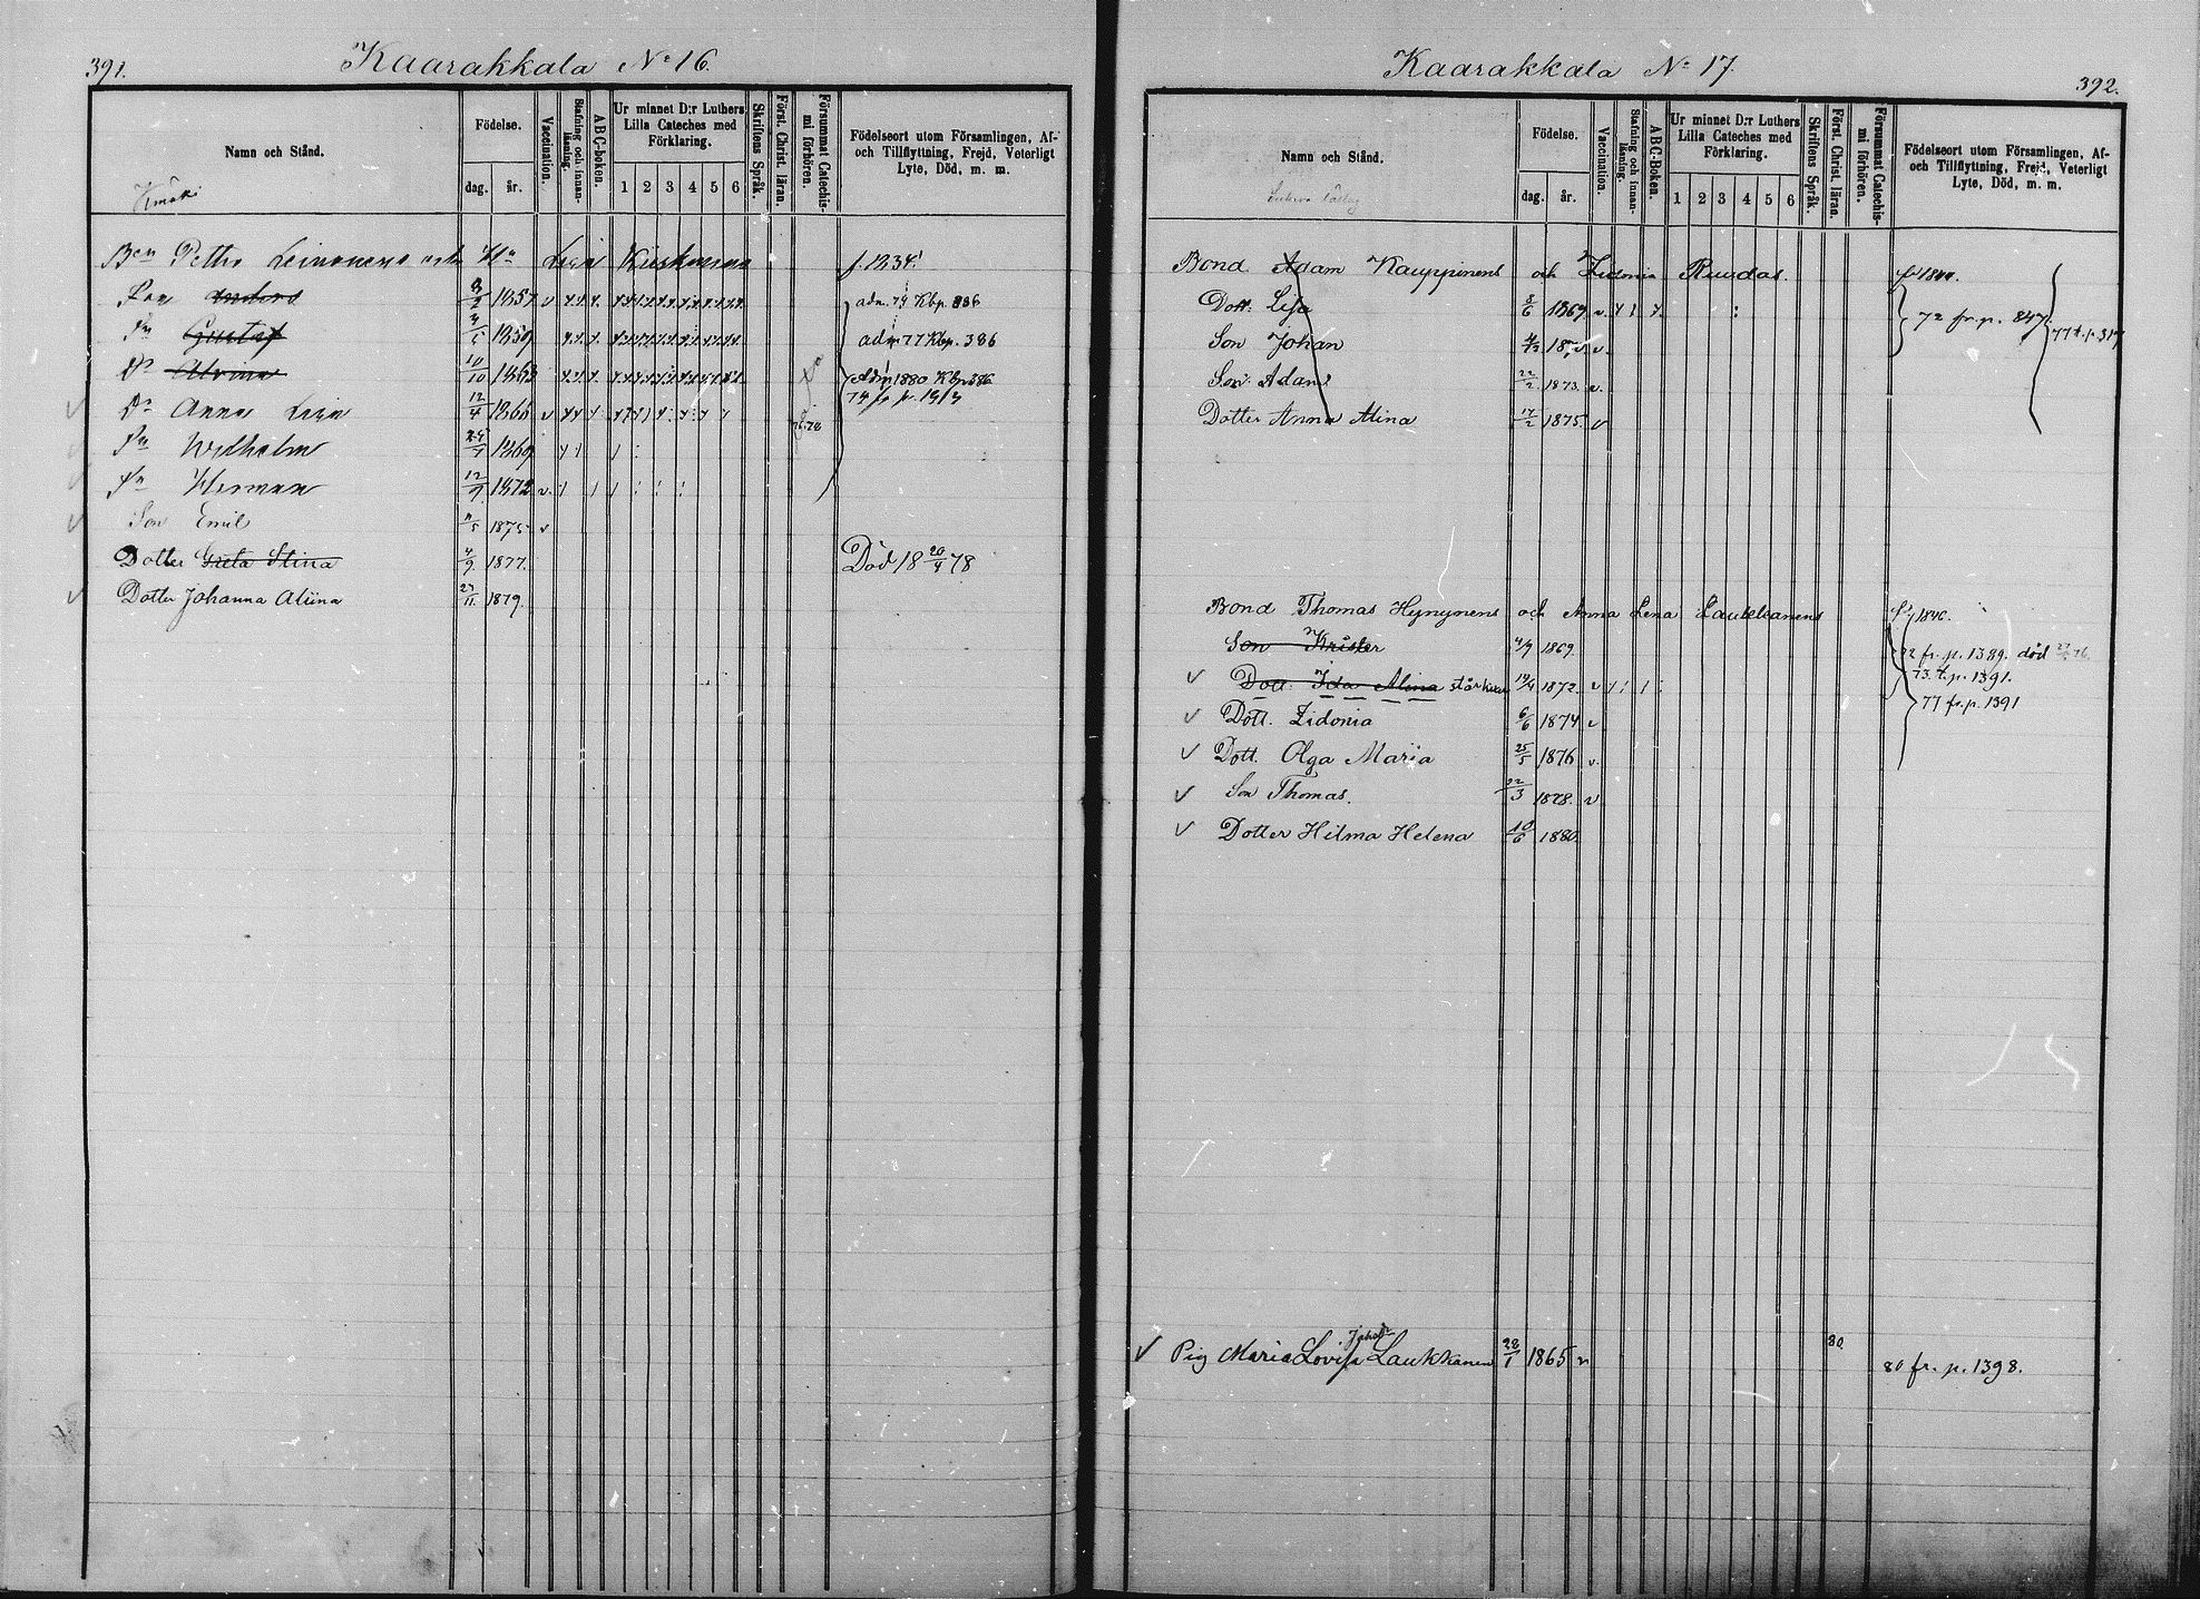 391.
Kaarakkala No 16.
Namn och Stånd.
Födelse.
dag. år.
Vaccination.
Stafning och innan-läsning.
ABC-boken.
Ur minnet D:r Luthers
Lilla Cateches med
Förklaring.
1 2 3 4 5 6
Skriftens Språk.
Först. Christ. läran.
Försummat Catechis-
mi förhören.
Födelseort utom Församlingen, Af-
och Tillflyttning, Frejd, Veterligt
Lyte, Död, m. m.
Petter Leinonens Kiiskinens f. 1834.
Anders 1857 v adm. 79 Kbp. 386
Gustaf 1859 adm 77 Kbp. 386
Alvina 10/10 1863 adm 1880 Kbp 386
Anna Lisa 12/4 1866 v
Wilhelm 1869
Herman 12/9 1872 v.
Son Emil 1875 v
Dotter Greta Stina 4/9. 1877. Död 18 20/4 78
Dotter Johanna Aliina 27/11. 1879.
392.
Kaarakkala No 17.
Namn och Stånd.
Födelse.
dag. år.
Vaccination.
Stafning och innan-läsning.
ABC-Boken.
Ur minnet D:r Luthers
Lilla Cateches med
Förklaring.
1 2 3 4 5 6
Skriftens Språk.
Först. Christ. läran.
Försummat Catechis-
mi förhören.
Födelseort utom Församlingen, Af-
och Tillflyttning, Frejd, Veterligt
Lyte, Död, m. m.
Bond Adam Kauppinens och Zidonia Ruudas.
Dott. Lisa 8/6 1869. v. 72 fr. p. 847.
Son Johan v. 77 t. p. 317
Son Adam 22/2 1873. v.
Dotter Anna Alina 17/2 1875. v
Bond Thomas Hynynens och Anna Lena Laukkanens 1846.
Son Krister 4/9 1869. 72 fr. p. 1389. död
Dott. Ida Alina 19/4 1872. v 73. t. p. 1391.
Dott. Zidonia 6/6 1874 v 77 fr. p. 1391
Dott. Olga Maria 25/5 1876 v.
Son Thomas. 22/3 1878. v
Dotter Hilma Helena 10/6 1880.
Pig Maria Lovisa Laukkanen 28/1 1865 v 80 80 fr. p. 1398.